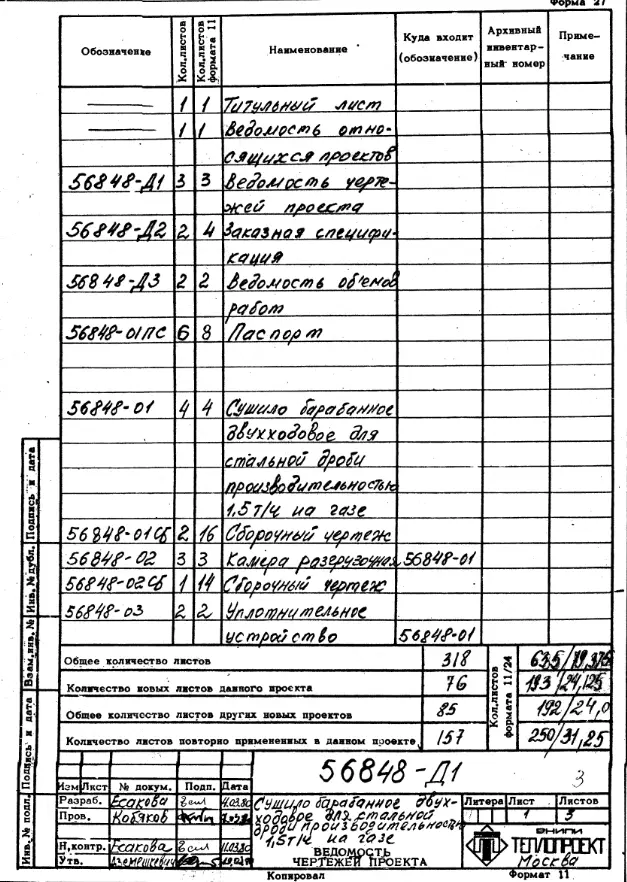 Форма 27
Обозначение Кол.листов Кол.листов формата 11 Наименование Куда входит (обозначение) Архивный инвентар-ный номер Приме-чание
1 1 Титульный лист
1 1 Ведомость отно-
сящихся проектов
56848-Д1 3 3 Ведомость черте-
жей проекта
56848-Д2 2 4 Заказная специфи-
кация
56848-Д3 2 2 Ведомость объемов
работ
56848-01ПС 6 8 Паспорт
56848-01 4 4 Сушило барабанное
двухходовое для
стальной дроби
производительностью
1,5т/ч на газе
56848-01СБ 2 16 Сборочный чертеж
56848-02 3 3 Камера разгрузочная 56848-01
56848-02СБ 1 14 Сборочный чертеж
56848-03 2 2 Уплотнительное
устройство 56848-01
Общее количество листов 318
Количество новых листов данного проекта 76
Общее количество листов других новых проектов 85
Количество листов повторно примененных в данном проекте 157
Кол.листов формата 11/24
635/79,375
193/24,125
192/24,0
250/31,25
Инв.№ подл. Подпись и дата Взам.инв.№ Инв.№ дубл. Подпись и дата
56848-Д1 3
Изм Лист № докум. Подп. Дата
Разраб. Есакова
Пров. Кобяков
Н.контр. Есакова 11.03.80
Утв.
Сушило барабанное двух-
ходовое для стальной
дроби производительностью
1,5т/ч на газе
ВЕДОМОСТЬ
ЧЕРТЕЖЕЙ ПРОЕКТА
Литера Лист Листов
1 3
ВНИПИ
ТЕПЛОПРОЕКТ
Москва
Копировал Формат 11